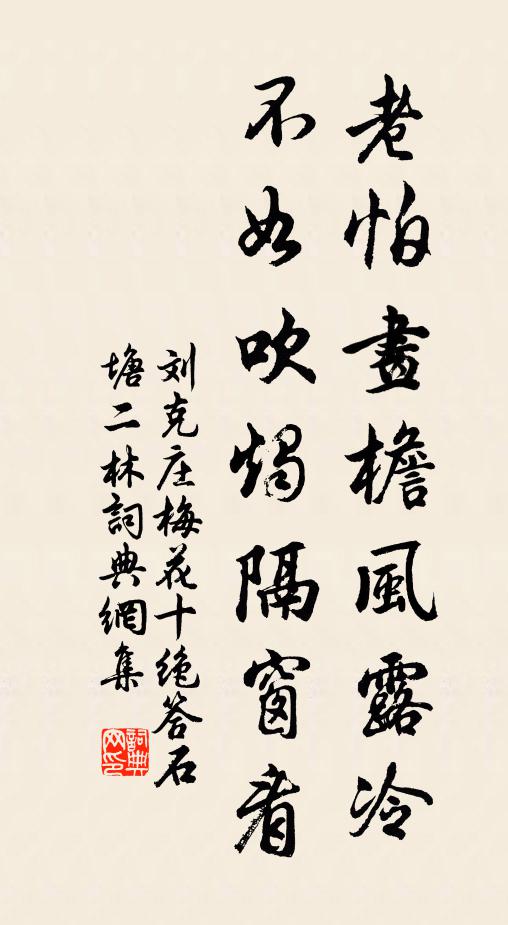 老怕畫檐風露冷
不如吹燭隔窗看
刘克庄梅花十绝答石
塘二林詞典網集
詞典
网印